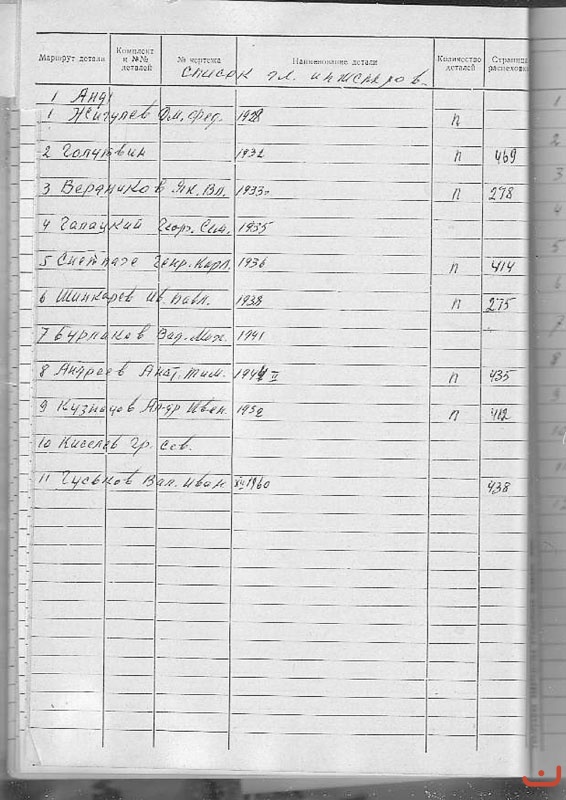 Маршрут детали Комплект и №№ деталей № чертежа Наименование детали Количество деталей Страница распеховки
список гл. инженеров.
1 Анд
1 Жигулев Дм. Фед. 1928 п
2 Голутвин 1932 п 469
3 Бердников Як. Вл. 1933 п 278
4 Галацкий Геор. Сем. 1935
5 Генр. Карл. 1936 п 414
6 Шинкарев Ив. Павл. 1938 п 275
7 Бурлаков Вад. Мих. 1941
8 Андреев Анат. Тим. 1944 II п 435
9 Кузнецов Ан-др Иван. 1950 п 412
10 Киселев Гр. Сев.
11 Гуськов Вал. Иван XII 1960 438